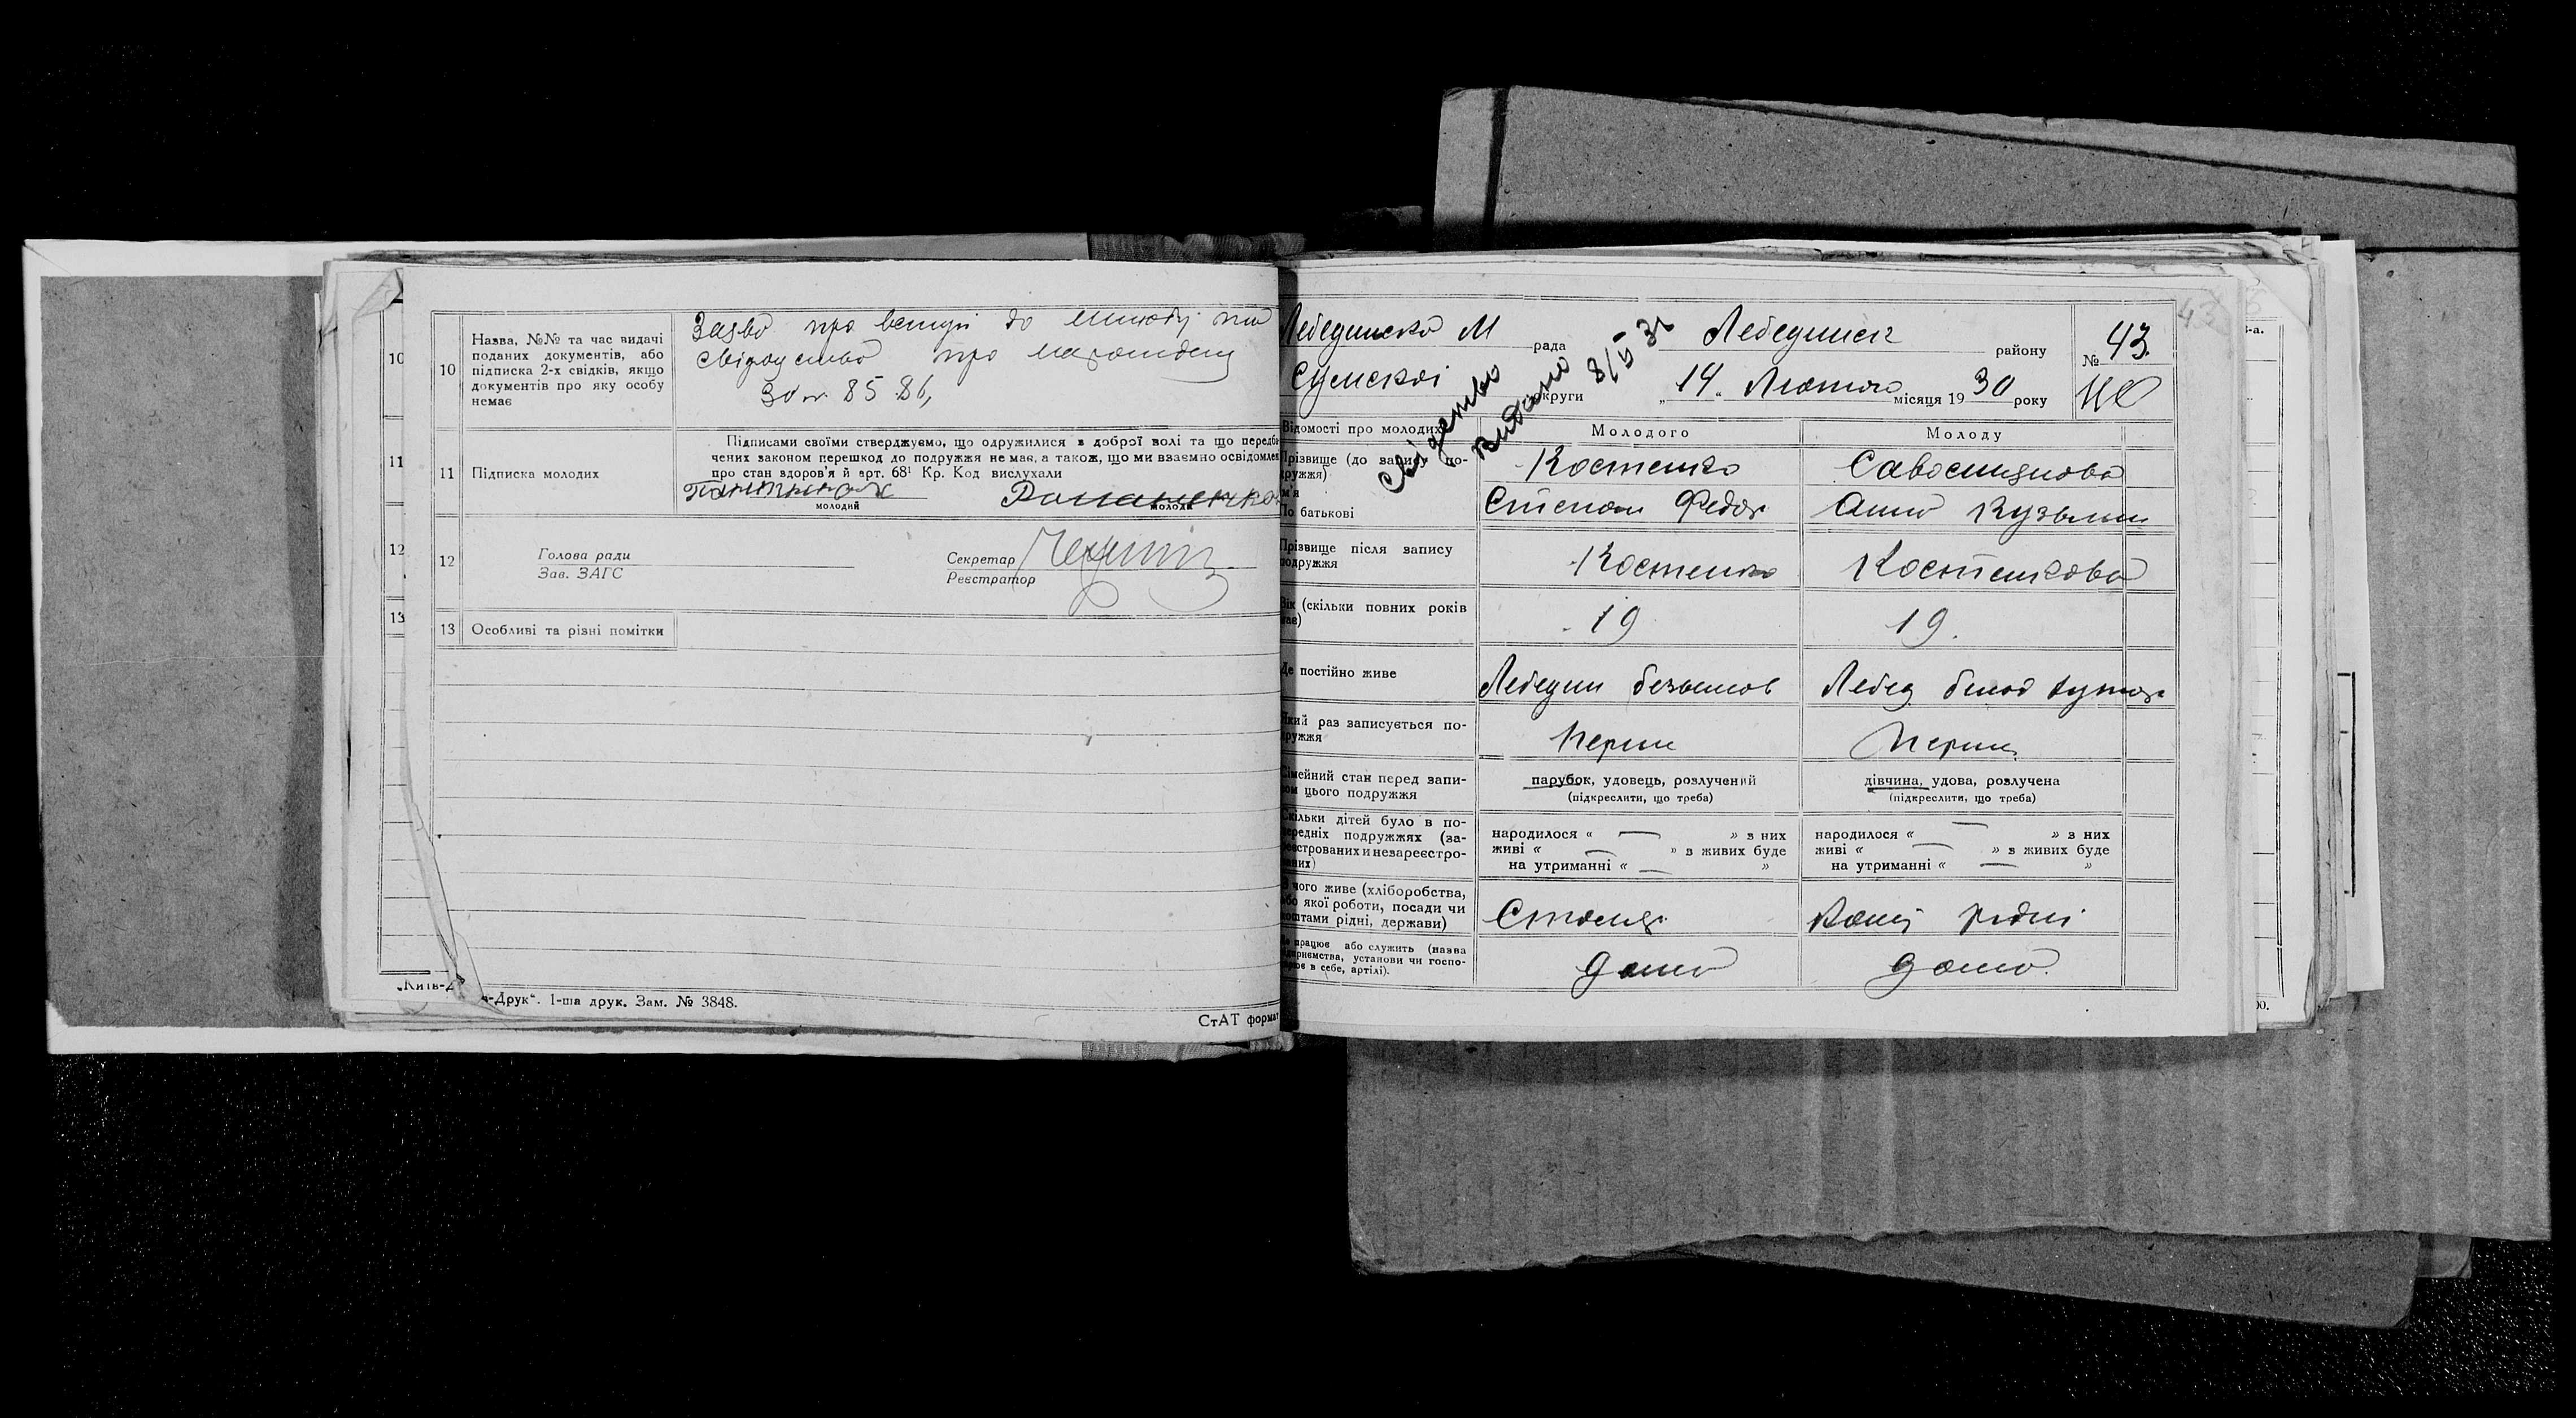 10
11
12
13
10
Назва, №№ та час видачі
поданих документів, або
підписка 2-х свідків, якщо
документів про яку особу
немає
Заява про вступ до шлюбу та
свідоцтво про
За № 85 86,
11
Підписка молодих
Підписами своїми стверджуємо, що одружилися з доброї волі та що передба
чених законом перешкод до подружжя немає, а також, що ми взаємно освідомлен
про стан здоров'я й арт. 68¹ Кр. Код вислухали
молодий
молода
12
Голова ради
Зав. ЗАГС
Секретар
Реєстратор
13
Особливі та різні помітки
„Київ-Д
-Друк“. 1-ша друк. Зам. № 3848.
СтАТ формат
Лебединська М рада Лебединськ району
Сумської округи „14“ Лютого місяця 1930 року
№ 43.
43
Свідетво
видано 8/
Відомості про молодих
Молодого
Молоду
Прізвище (до запису по-
дружжя)
Костенко
Савостянова
м'я
По батькові
Степан Федор
Анна Кузьмин
Прізвище після запису
подружжя
Костенко
Костенкова
Вік (скільки повних років
має)
19
19.
Де постійно живе
Лебедин
Лебед
Який раз записується по-
дружжя
перш
перш
Сімейний стан перед запи-
сом цього подружжя
парубок, удовець, розлучений
(підкреслити, що треба)
дівчина, удова, розлучена
(підкреслити, що треба)
Скільки дітей було в по-
передніх подружжях (за-
реєстрованих и незареєстро-
ваних)
народилося « — » з них
живі « — » з живих буде
на утриманні « — »
народилося « — » з них
живі « — » з живих буде
на утриманні « — »
З чого живе (хліборобства,
або якої роботи, посади чи
коштами рідні, держави)
Столяр
Кош рідні
Де працює або служить (назва
підприємства, установи чи госпо-
дарює в себе, артілі).
дома
дома.